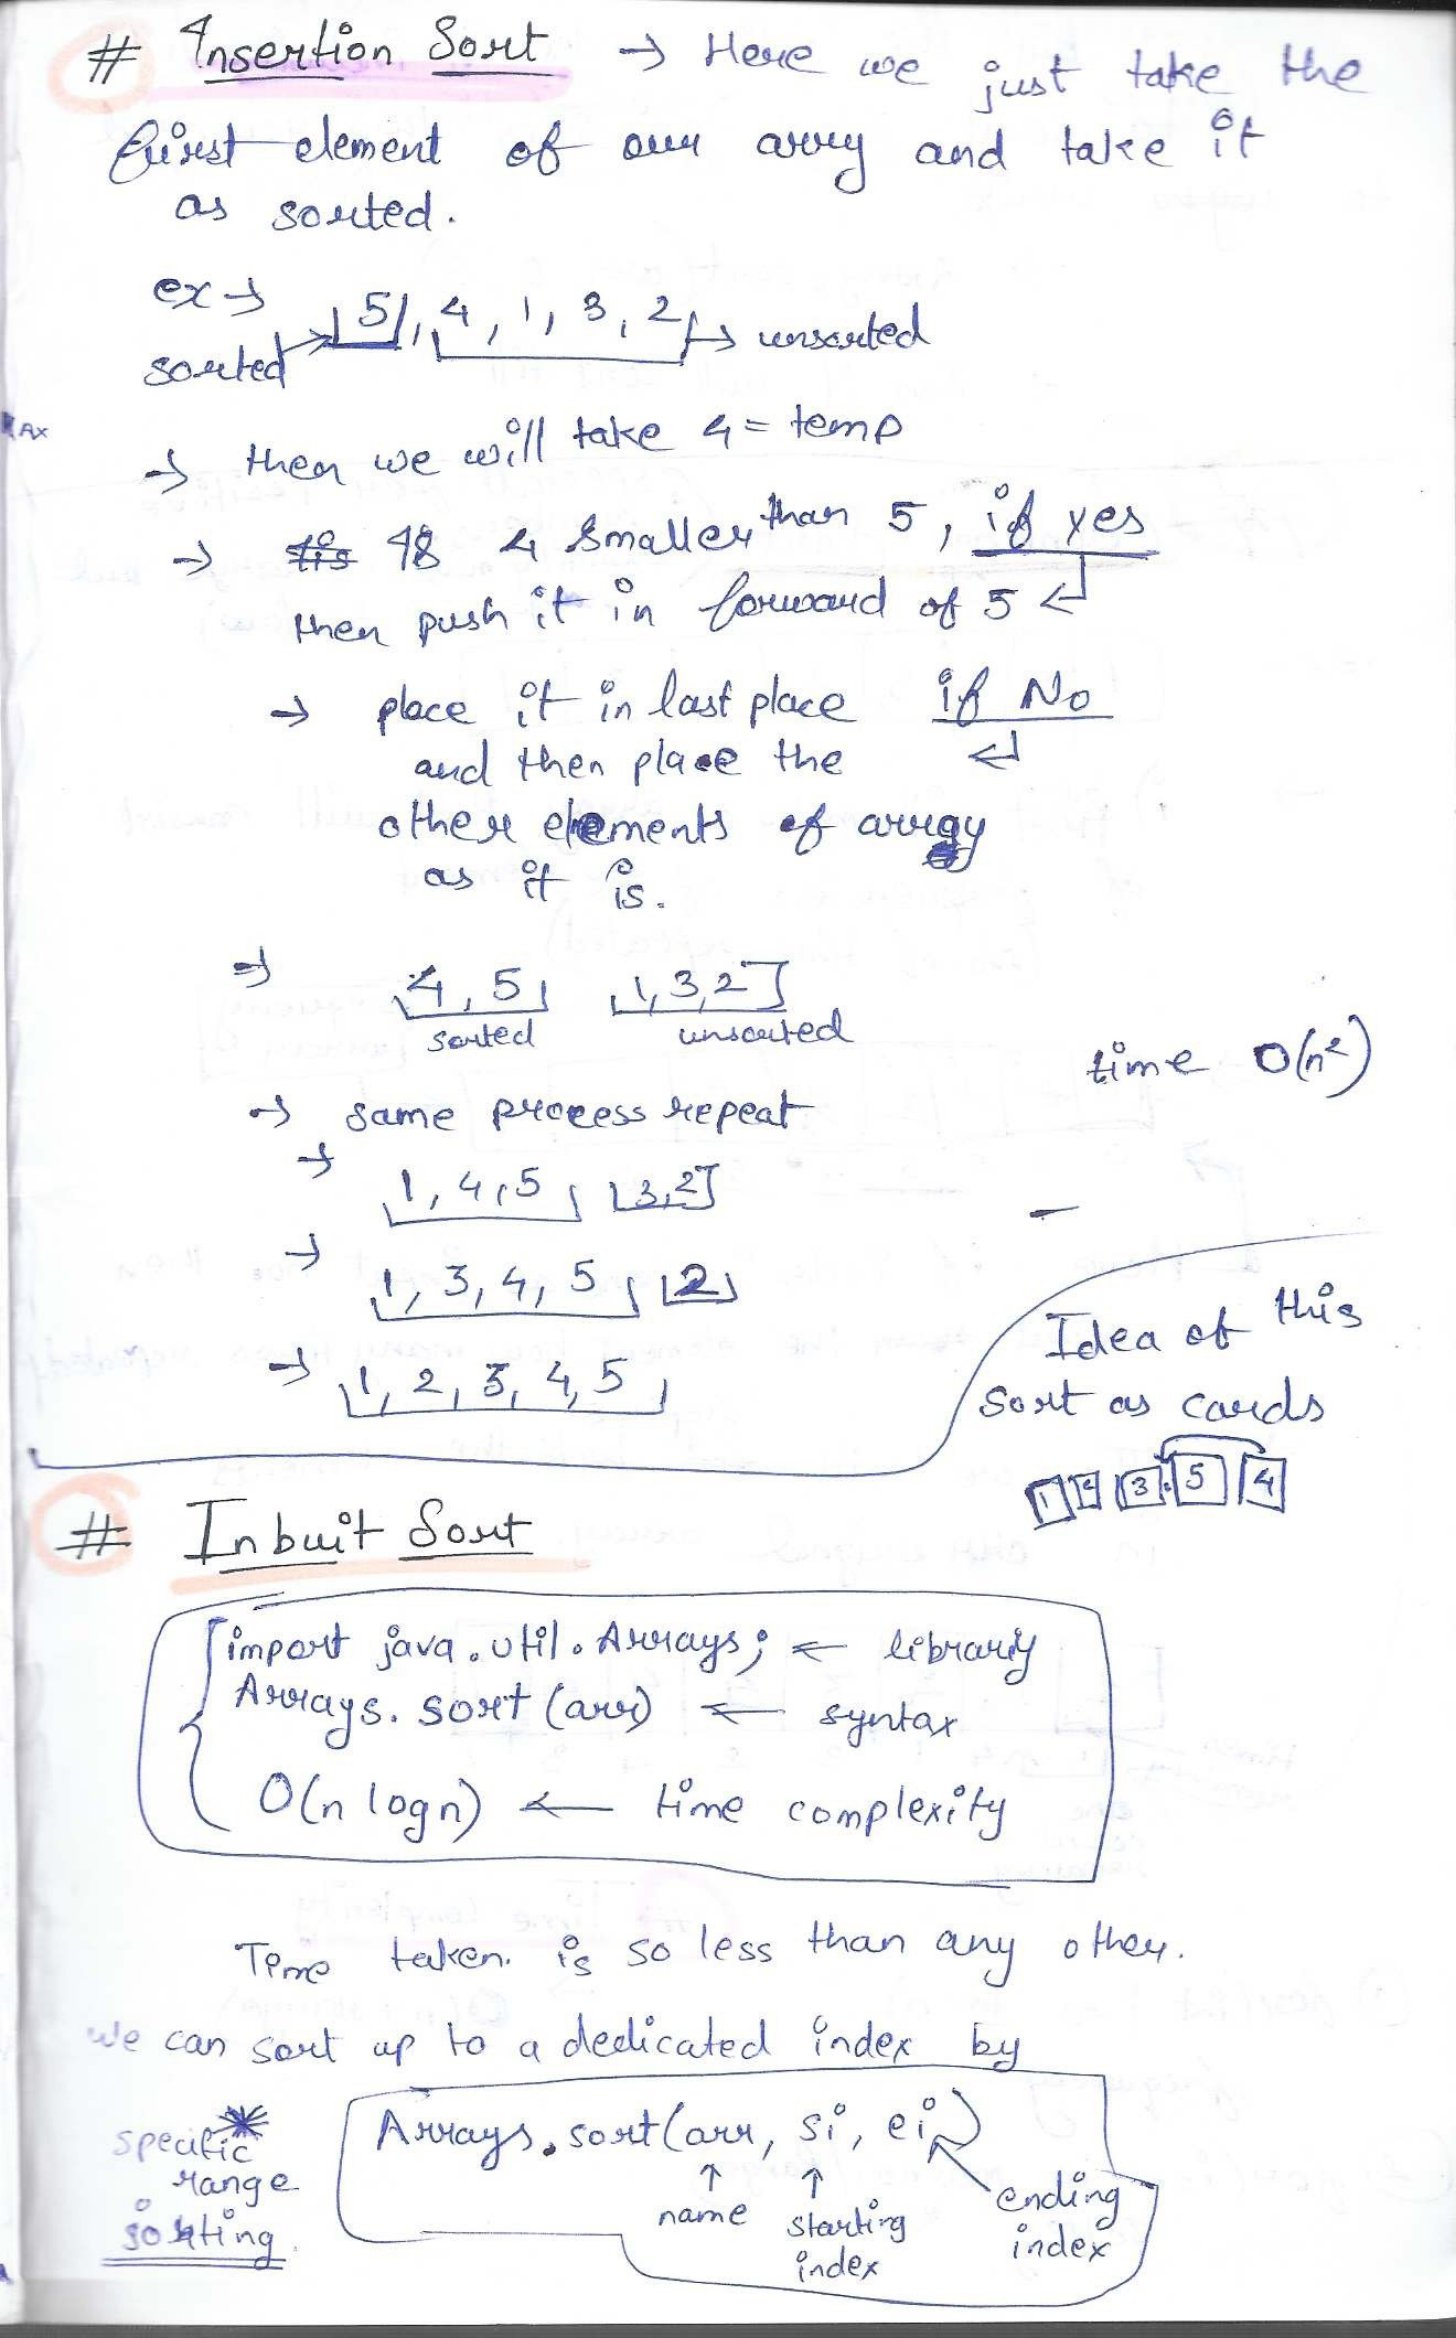 # Insertion Sort → Here we just take the
first element of our array and take it
as sorted.
ex →
sorted → 5, 4, 1, 3, 2 → unsorted
→ then we will take 4 = temp
→ Is 4 smaller than 5, if yes
then push it in forward of 5 ↵
→ place it in last place if No
and then place the ↵
other elements of array
as it is.
⇒ 4, 5, 1, 3, 2
sorted unsorted
time O(n²)
→ same process repeat
→ 1, 4, 5, 3, 2
→ 1, 3, 4, 5, 2
→ 1, 2, 3, 4, 5
Idea of this
Sort as cards
1 2 3 5 4
# Inbuit Sort
import java.util.Arrays; ← library
Arrays.sort (arr) ← syntax
O(n log n) ← time complexity
Time taken is so less than any other.
we can sort up to a dedicated index by
specific
range
sorting
Arrays.sort(arr, si, ei)
↑ name ↑ starting index ending index